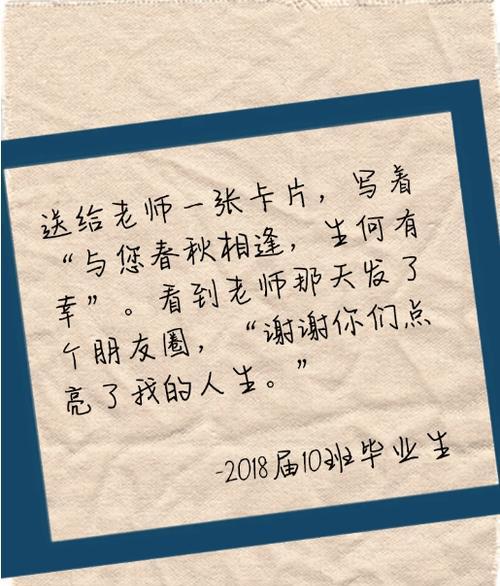 送给老师一张卡片，写着
“与您春秋相逢，生何有
幸”。看到老师那天发了
个朋友圈，“谢谢你们点
亮了我的人生。”
-2018届10班毕业生